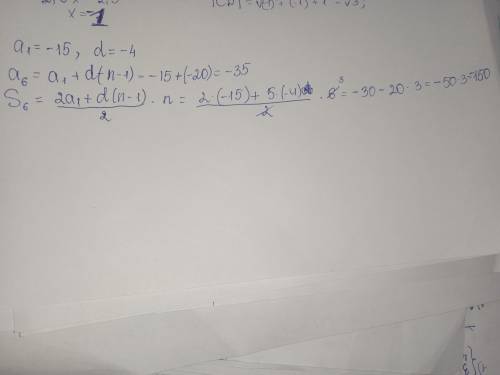 x = -1
a₁ = -15, d = -4
a₆ = a₁ + d(n-1) = -15 + (-20) = -35
S₆ = (2a₁ + d(n-1))/2 · n = (2·(-15) + 5·(-4))/2 · 6 ³ = -30 - 20 · 3 = -50·3 = -150